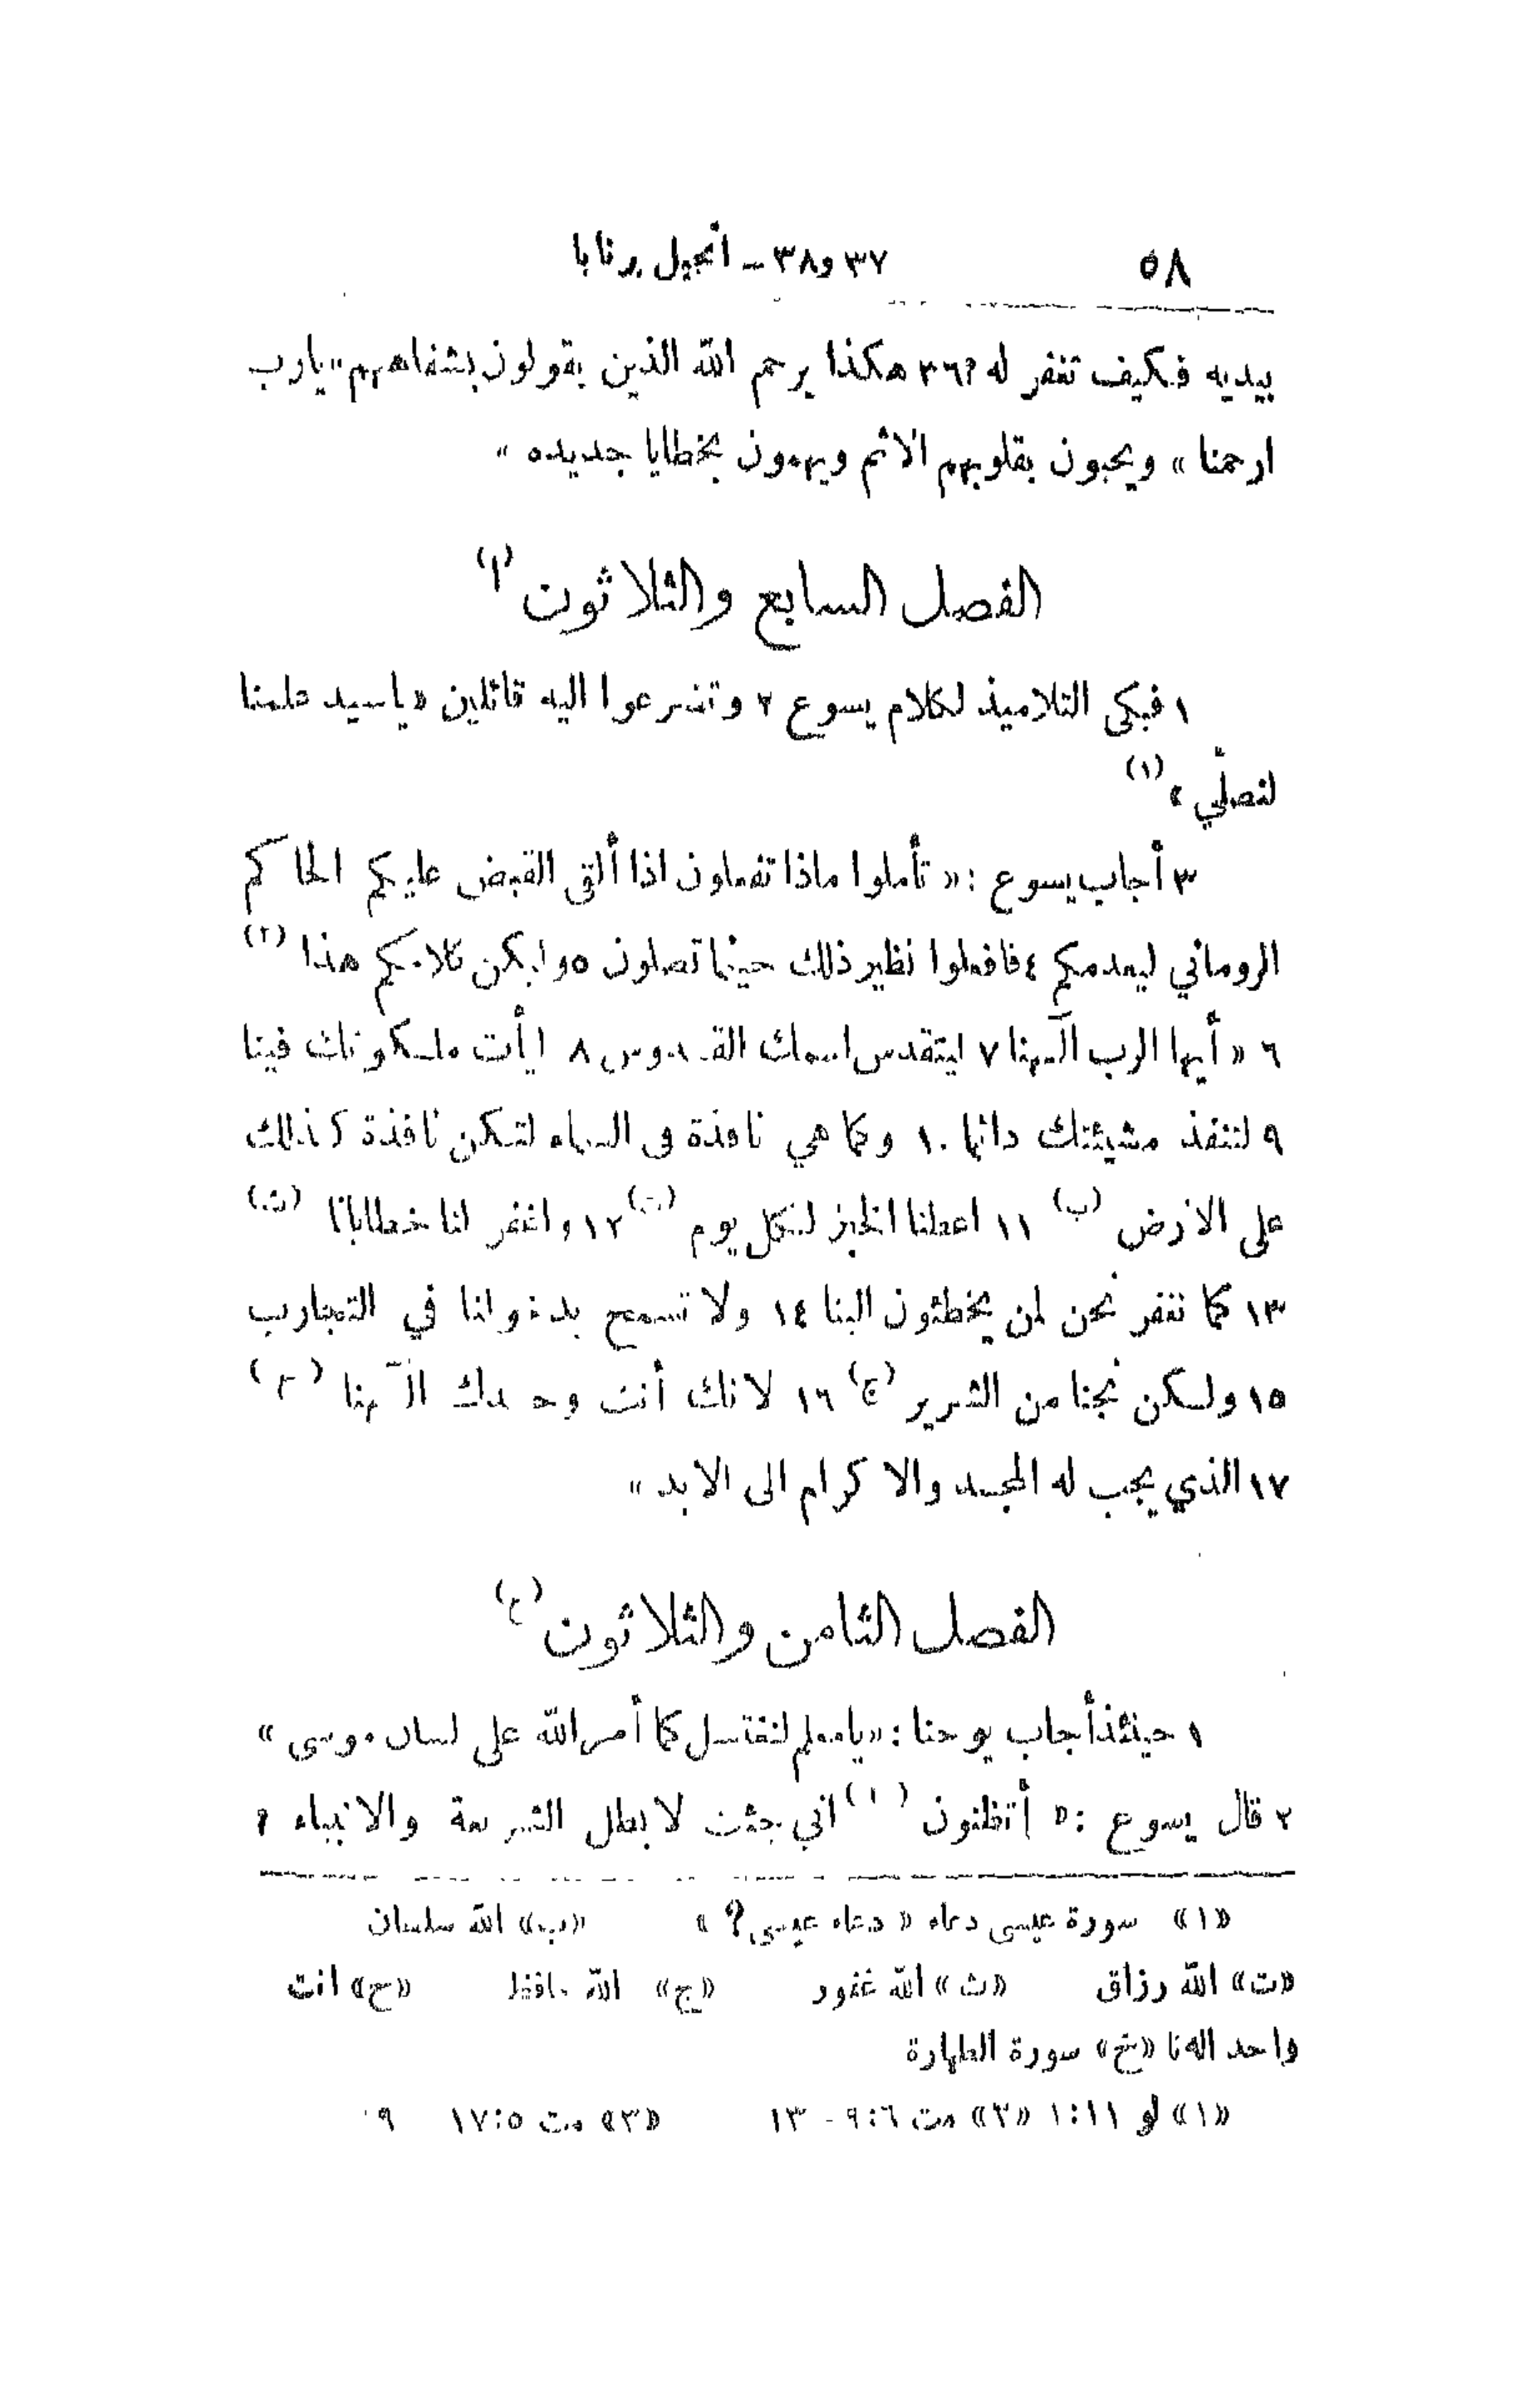 ٥٨ ٣٧ و٣٨ – انجيل برنابا
بيديه فكيف تغفر له ؟ ٣٦ هكذا يرحم الله الذين يقولون بشفاههم « يارب
ارحمنا » ويحبون بقلوبهم الاثم ويهمون بخطايا جديده »
الفصل السابع والثلاثون (ا)
١ فبكى التلاميذ لكلام يسوع ٢ وتضرعوا اليه قائلين « ياسيد علمنا
لنصلّي » (١)
٣ أجاب يسوع : « تأملوا ماذا تفعلون اذا ألقى القبض عليكم الحاكم
الروماني ليعدمكم ٤ فافعلوا نظير ذلك حينما تصلون ٥ وليكن كلامكم هذا (٢)
٦ « أيها الرب آلهنا ٧ ليتقدس اسمك القدوس ٨ ليأت ملكوتك فينا
٩ لتنفذ مشيئتك دائما ١٠ وكما هي نافذة في السماء لتكن نافذة كذلك
على الارض (ب) ١١ اعطنا الخبز لكل يوم (ت) ١٢ واغفر لنا خطايانا (ث)
١٣ كما نغفر نحن لمن يخطئون الينا ١٤ ولا تسمح بدخولنا في التجارب
١٥ ولكن نجنا من الشرير (ج) ١٦ لانك أنت وحدك آلهنا (ح)
١٧ الذي يجب له المجد والاكرام الى الابد »
الفصل الثامن والثلاثون (خ)
١ حينئذ أجاب يوحنا : « يامعلم لنغتسل كما أمر الله على لسان موسى »
٢ قال يسوع : « أتظنون (١) اني جئت لابطل الشريعة والانبياء ؟
«ا» سورة عيسى دعاه « دعاء عيسى ؟ » «ب» الله سلطان
«ت» الله رزاق «ث» الله غفور «ج» الله حافظ «ح» انت
واحد الهنا «خ» سورة الطهارة
«١» لو ١١ : ١ «٢» مت ٦ : ٩ - ١٣ «٣» مت ٥ : ١٧ ٩